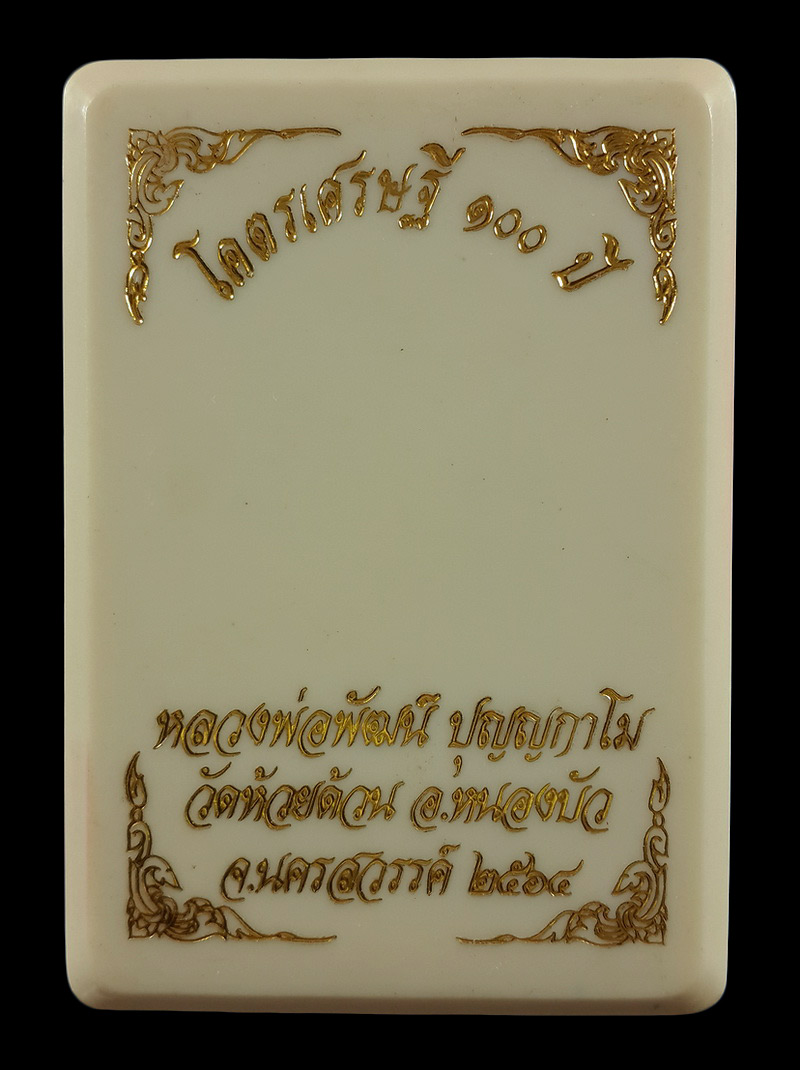 โคตรเศรษฐี ๑๐๐ ปี
หลวงพ่อพัฒน์ ปุญญกาโม
วัดห้วยด้วน อ.หนองบัว
จ.นครสวรรค์ ๒๕๖๔